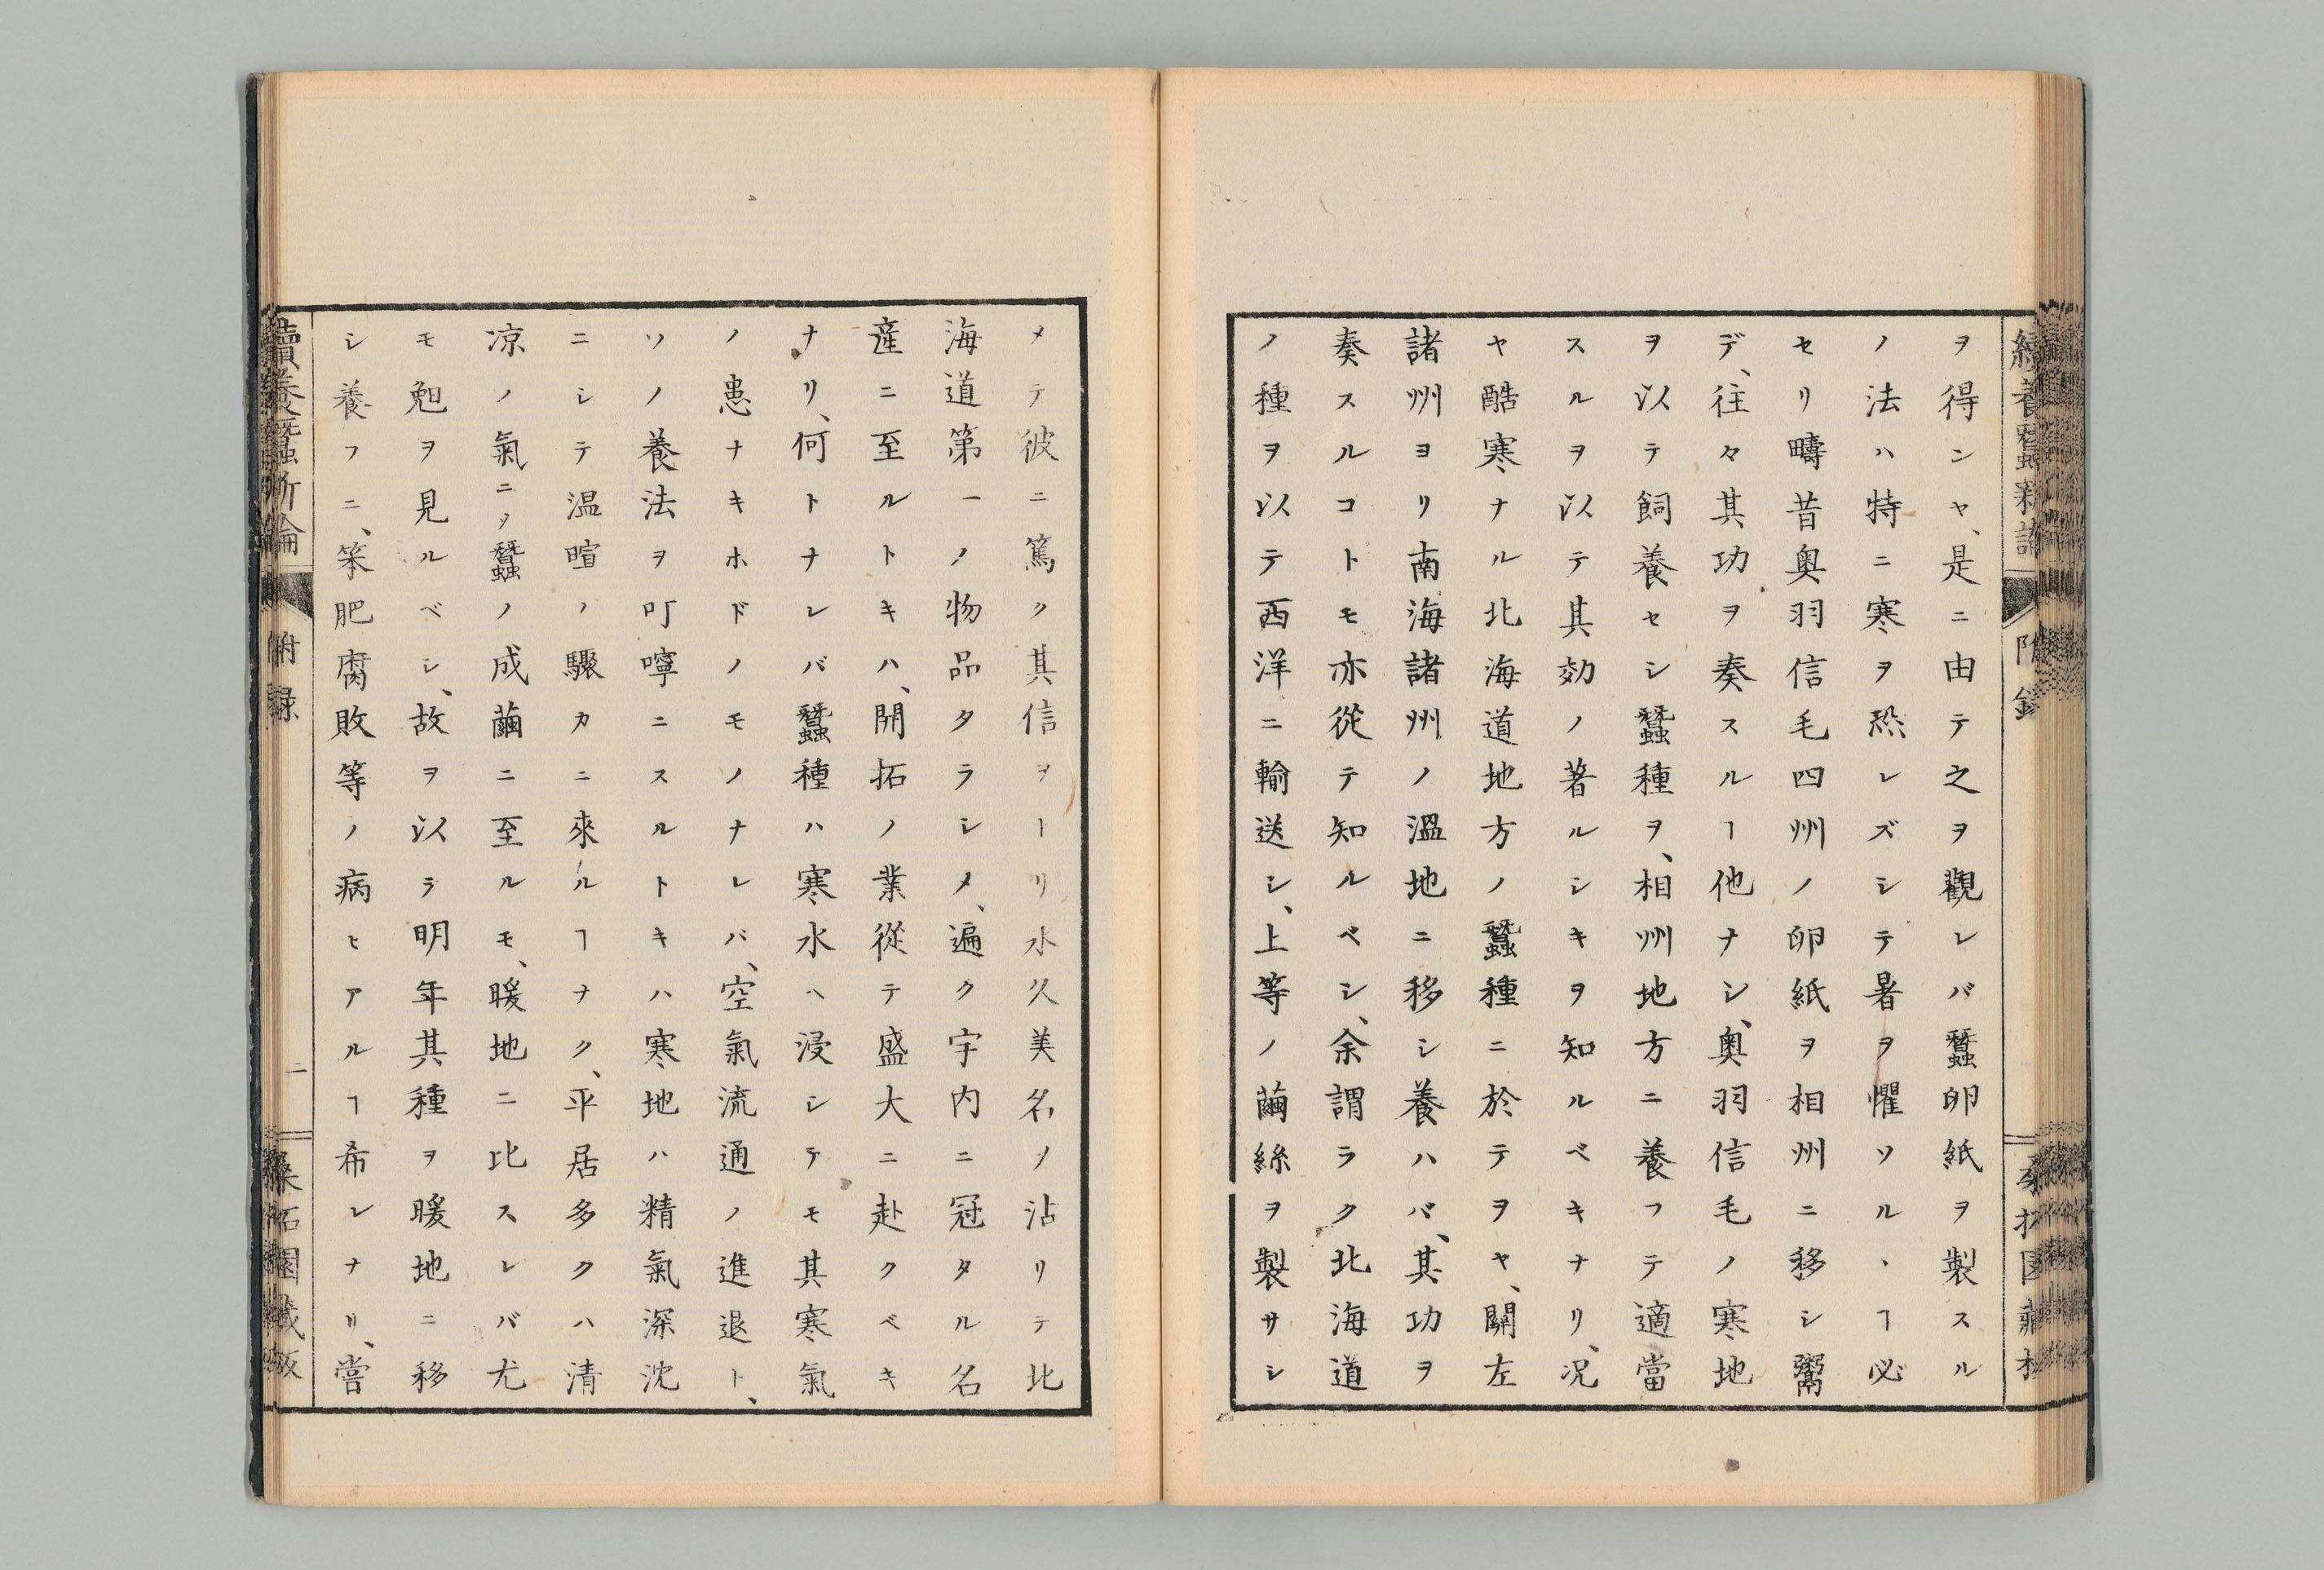 ヲ得ンヤ、是ニ由テ之ヲ觀レバ蠶卵紙ヲ製スル
ノ法ハ特ニ寒ヲ恐レズシテ暑ヲ懼ソルヽヿ必
セリ疇昔奥羽信毛四州ノ卵紙ヲ相州ニ移シ鬻
デ、往々其功ヲ奏スルヿ他ナシ、奥羽信毛ノ寒地
ヲ以テ飼養セシ蠶種ヲ、相州地方ニ養フテ適當
スルヲ以テ其効ノ著ルシキヲ知ルベキナリ、况
ヤ酷寒ナル北海道地方ノ蠶種ニ於テヲヤ、關左
諸州ヨリ南海諸州ノ溫地ニ移シ養ハバ、其功ヲ
奏スルコトモ亦從テ知ルベシ、余謂ラク北海道
ノ種ヲ以テ西洋ニ輸送シ、上等ノ繭絲ヲ製サシ
メテ彼ニ篤ク其信ヲーリ水久美名ノ沾リテ北
海道第一ノ物品タラシメ、遍ク宇内ニ冠タル名
產ニ至ルトキハ、開拓ノ業從テ盛大ニ赴クベキ
ナリ、何トナレバ蠶種ハ寒水ヘ浸シテモ其寒氣
ノ患ナキホドノモノナレバ、空氣流通ノ進退ト、
ソノ養法ヲ叮嚀ニスルトキハ寒地ハ精氣深沈
ニシテ温暄ノ驟カニ來ルヿナク、平居多クハ清
凉ノ氣ニタ蠶ノ成繭ニ至ルモ、暖地ニ比スレバ尤
モ勉ヲ見ルベシ、故ヲ以ラ明年其種ヲ暖地ニ移
シ養フニ、笨肥腐敗等ノ病ヒアルヿ希レナリ、嘗
續養蠶新論
附録
二
桑拓園藏版